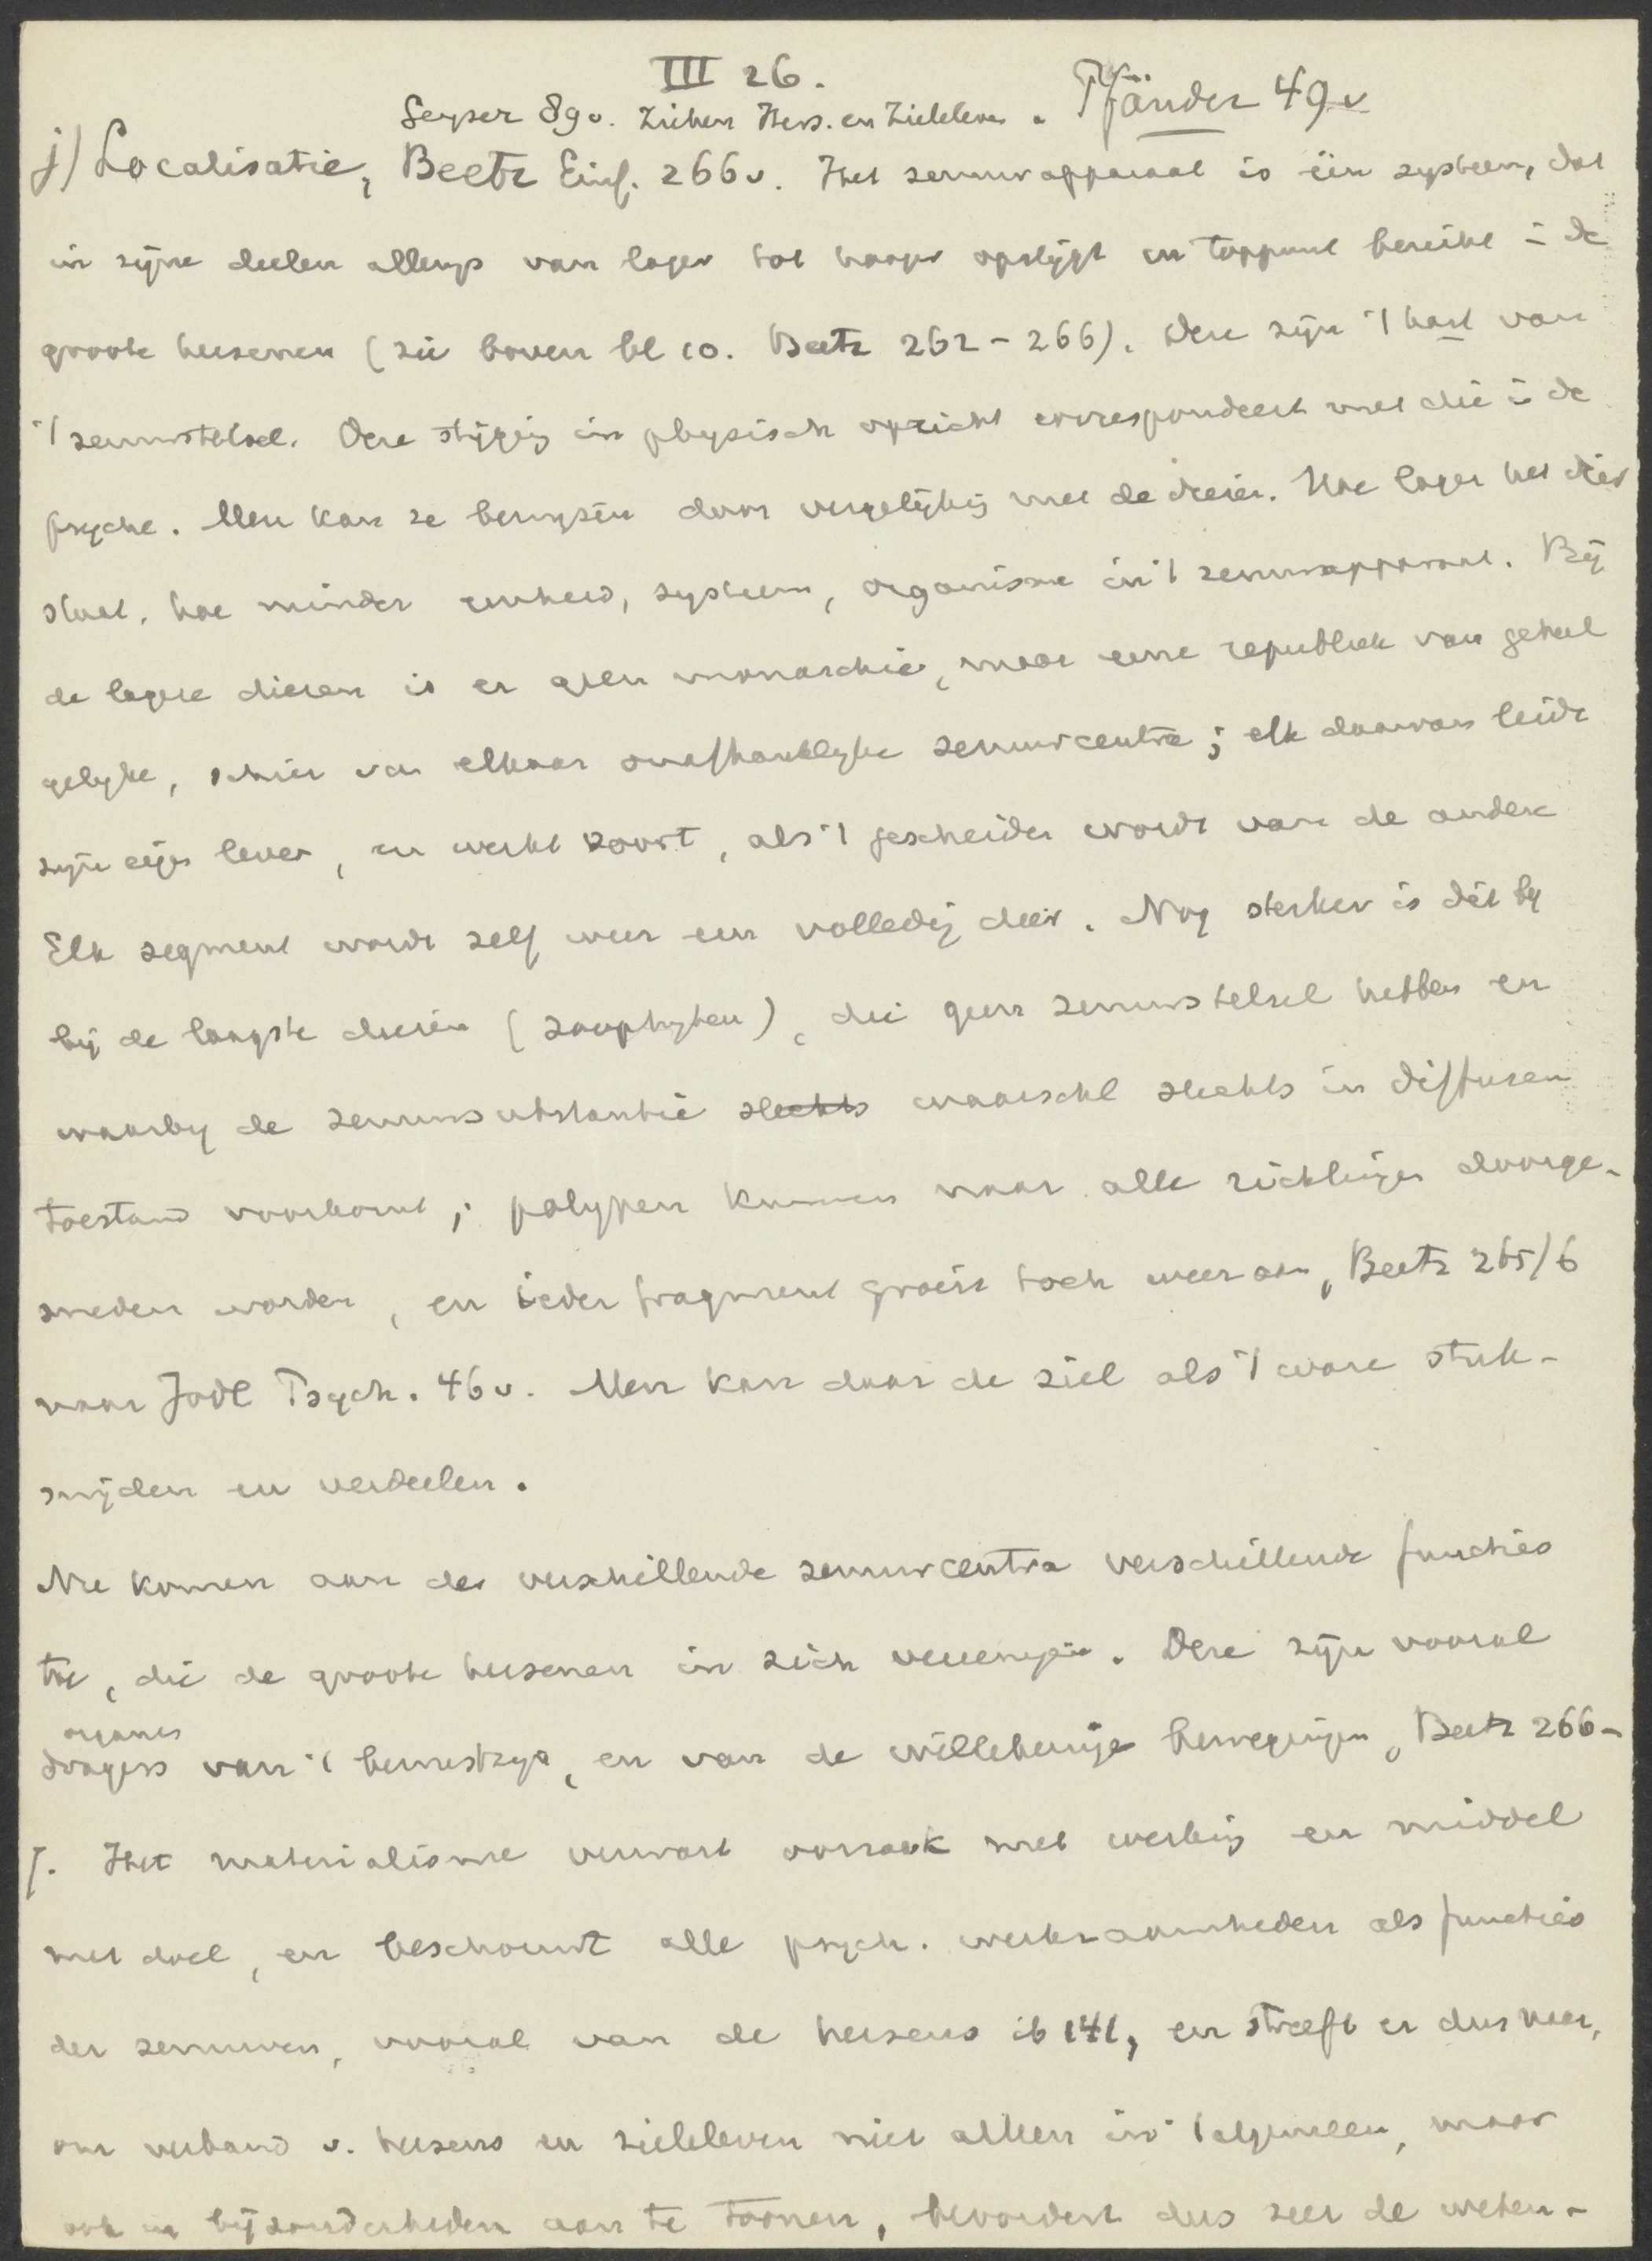 III 26.
Geyser 89v. Ziehen Hers. en Zieleleven. Pfänder 49v
j) Localisatie, Beetz Einf. 266v. Het zenuwapparaat is één systeem, dat
in zijne deelen allengs van lager tot hooger opstijgt en toppunt bereikt i de
groote hersenen (zie boven bl 10. Beetz 262-266). Deze zijn 't hart van
't zenuwstelsel. Deze stijging in physisch opzicht correspondeert met die i de
psyche. Men kan ze bewijzen door vergelijking met de dieren. Hoe lager het dier
staat, hoe minder eenheid, systeem, organisme in 't zenuwapparaat. Bij
de lagere dieren is er geen monarchie, maar eene republiek van geheel
gelijke, schier van elkaar onafhankelijke zenuwcentra; elk daarvan leidt
zijn eigen leven, en werkt voort, als 't gescheiden wordt van de andere
Elk segment wordt zelf weer een volledig dier. Nog sterker is dit by
bij de laagste dieren (zoophyten), die geen zenuwstelsel hebben en
waarby de zenuwsubstantie slechts waarschl slechts in diffusen
toestand voorkomt; polypen kunnen naar alle richtingen doorge-
sneden worden, en ieder fragment groeit toch weer aan, Beetz 265/6
naar Jodl Psych. 46v. Men kan daar de ziel als 't ware stuk-
snijden en verdeelen.
Nu komen aan de verschillende zenuwcentra verschillende functies
toe, die de groote hersenen in zich vereenigen. Deze zijn vooral
organen
dragers van 't bewustzijn, en van de willekeurige bewegingen, Beetz 266-
7. Het materialisme verwart oorzaak met werking en middel
met doel, en beschouwt alle psych. werkzaamheden als functies
der zenuwen, vooral van de hersens ib 141, en streeft er dus naar,
om verband v. hersens en zieleleven niet alleen in 't algemeen, maar
ook in bijzonderheden aan te toonen, bevordert dus zeer de weten-